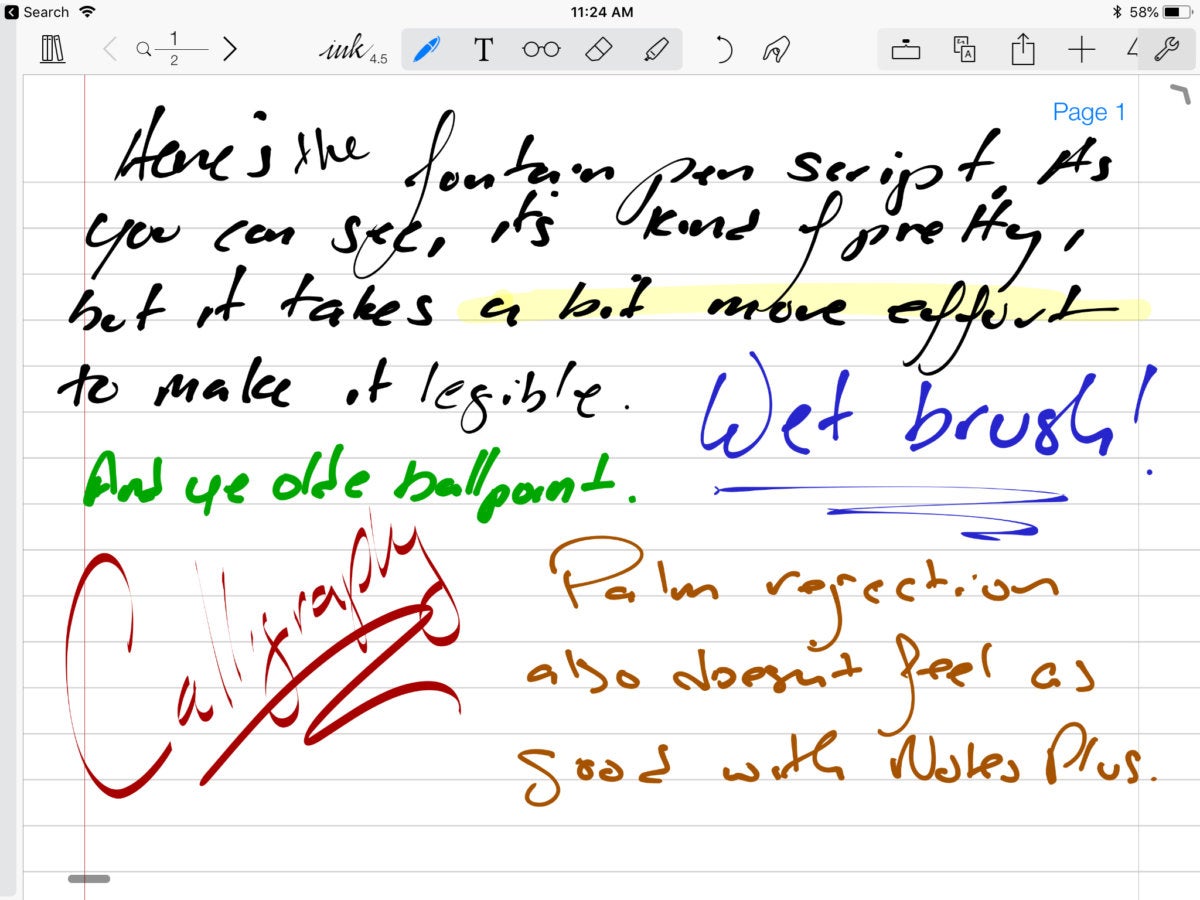 Search
11:24 AM
58%
1
2
ink 4.5
T
A
Page 1
Here's the fountain pen script. As
you can see, it's kind of pretty,
but it takes a bit more effort
to make it legible.
Wet brush!
And ye olde ballpoint.
Calligraphy
Palm rejection
also doesn't feel as
good with Notes Plus.